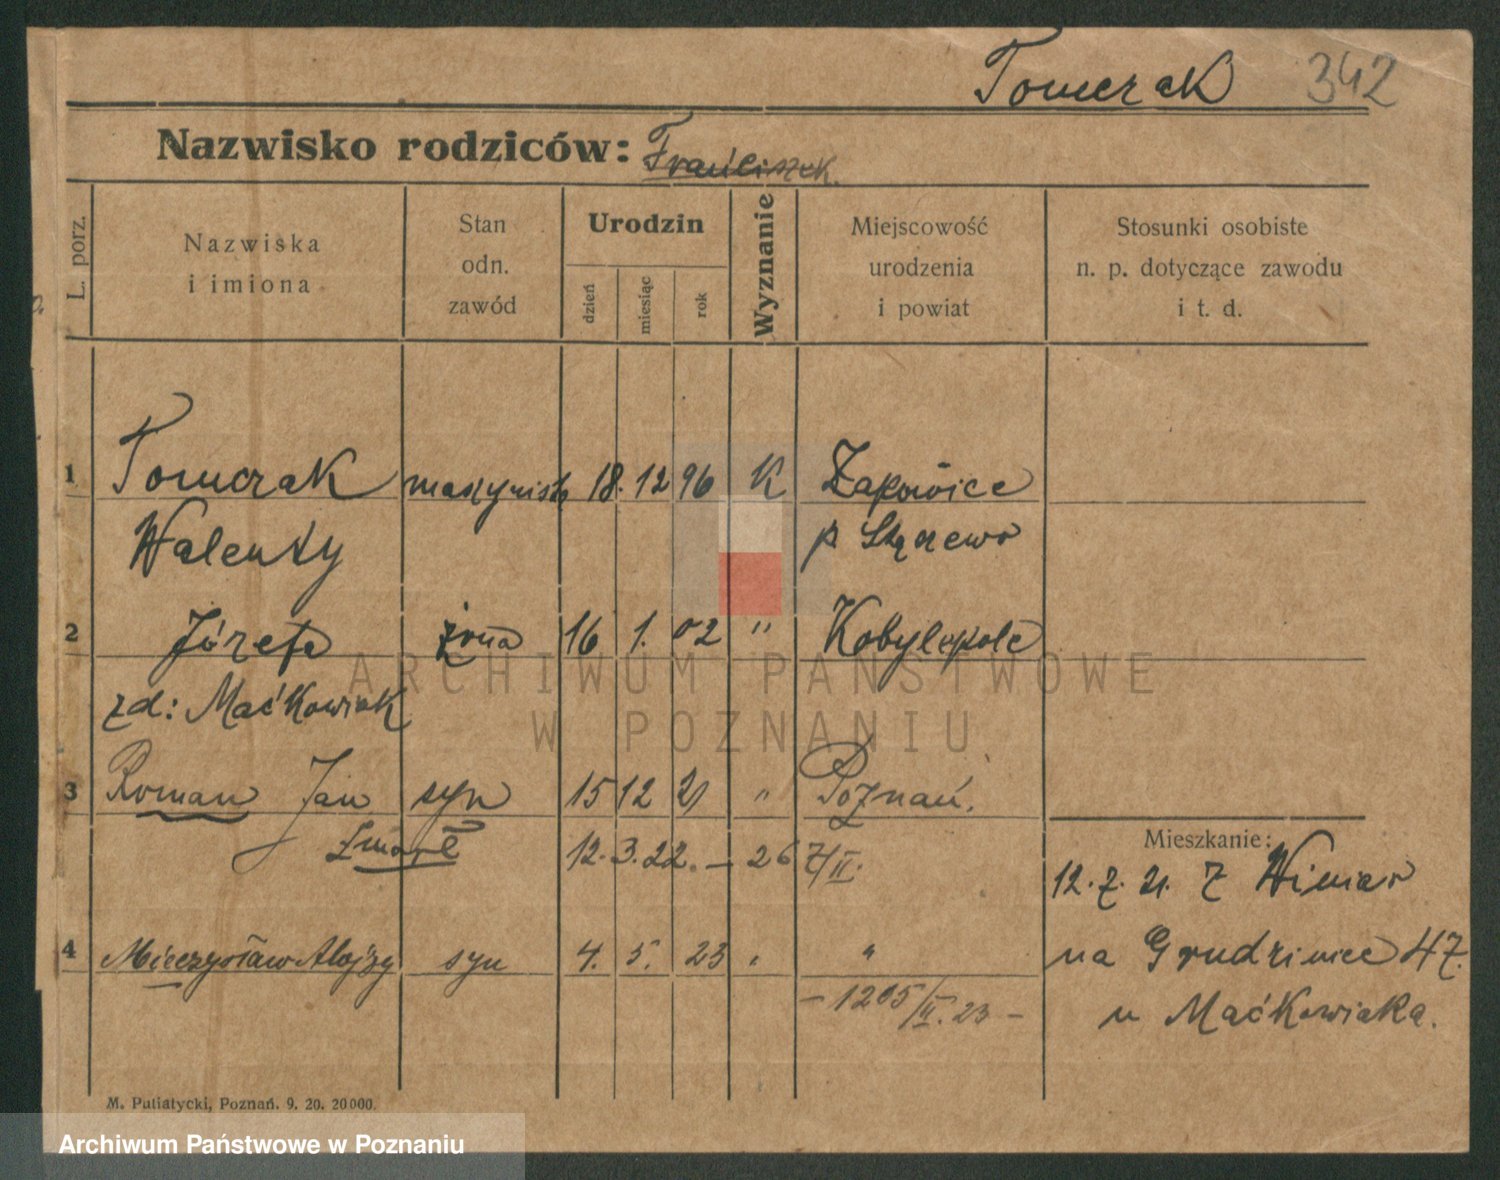 Tomczak 342
Nazwisko rodziców: Franciszek.
L. porz.
Nazwiska
i imiona
Stan
odn.
zawód
Urodzin
dzień
miesiąc
rok
Wyznanie
Miejscowość
urodzenia
i powiat
Stosunki osobiste
n. p. dotyczące zawodu
i t. d.
1 Tomczak maszynista 18. 12 96 K Zapowice
Walenty p Stęszewo
2 Józefa żona 16 1. 02 " Kobylepole
zd: Maćkowiak
3 Roman Jan syn 15 12 21 " Poznań.
zmarł 12. 3. 22. – 26 7/II.
Mieszkanie:
12. 7. 21. z Winiar
4 Mieczysław Alojzy syn 4. 5. 23 " "
na Grudzieniec 47.
– 1205/II. 23 –
u Maćkowiaka.
M. Putiatycki, Poznań. 9. 20. 20000.
ARCHIWUM PAŃSTWOWE
W POZNANIU
Archiwum Państwowe w Poznaniu